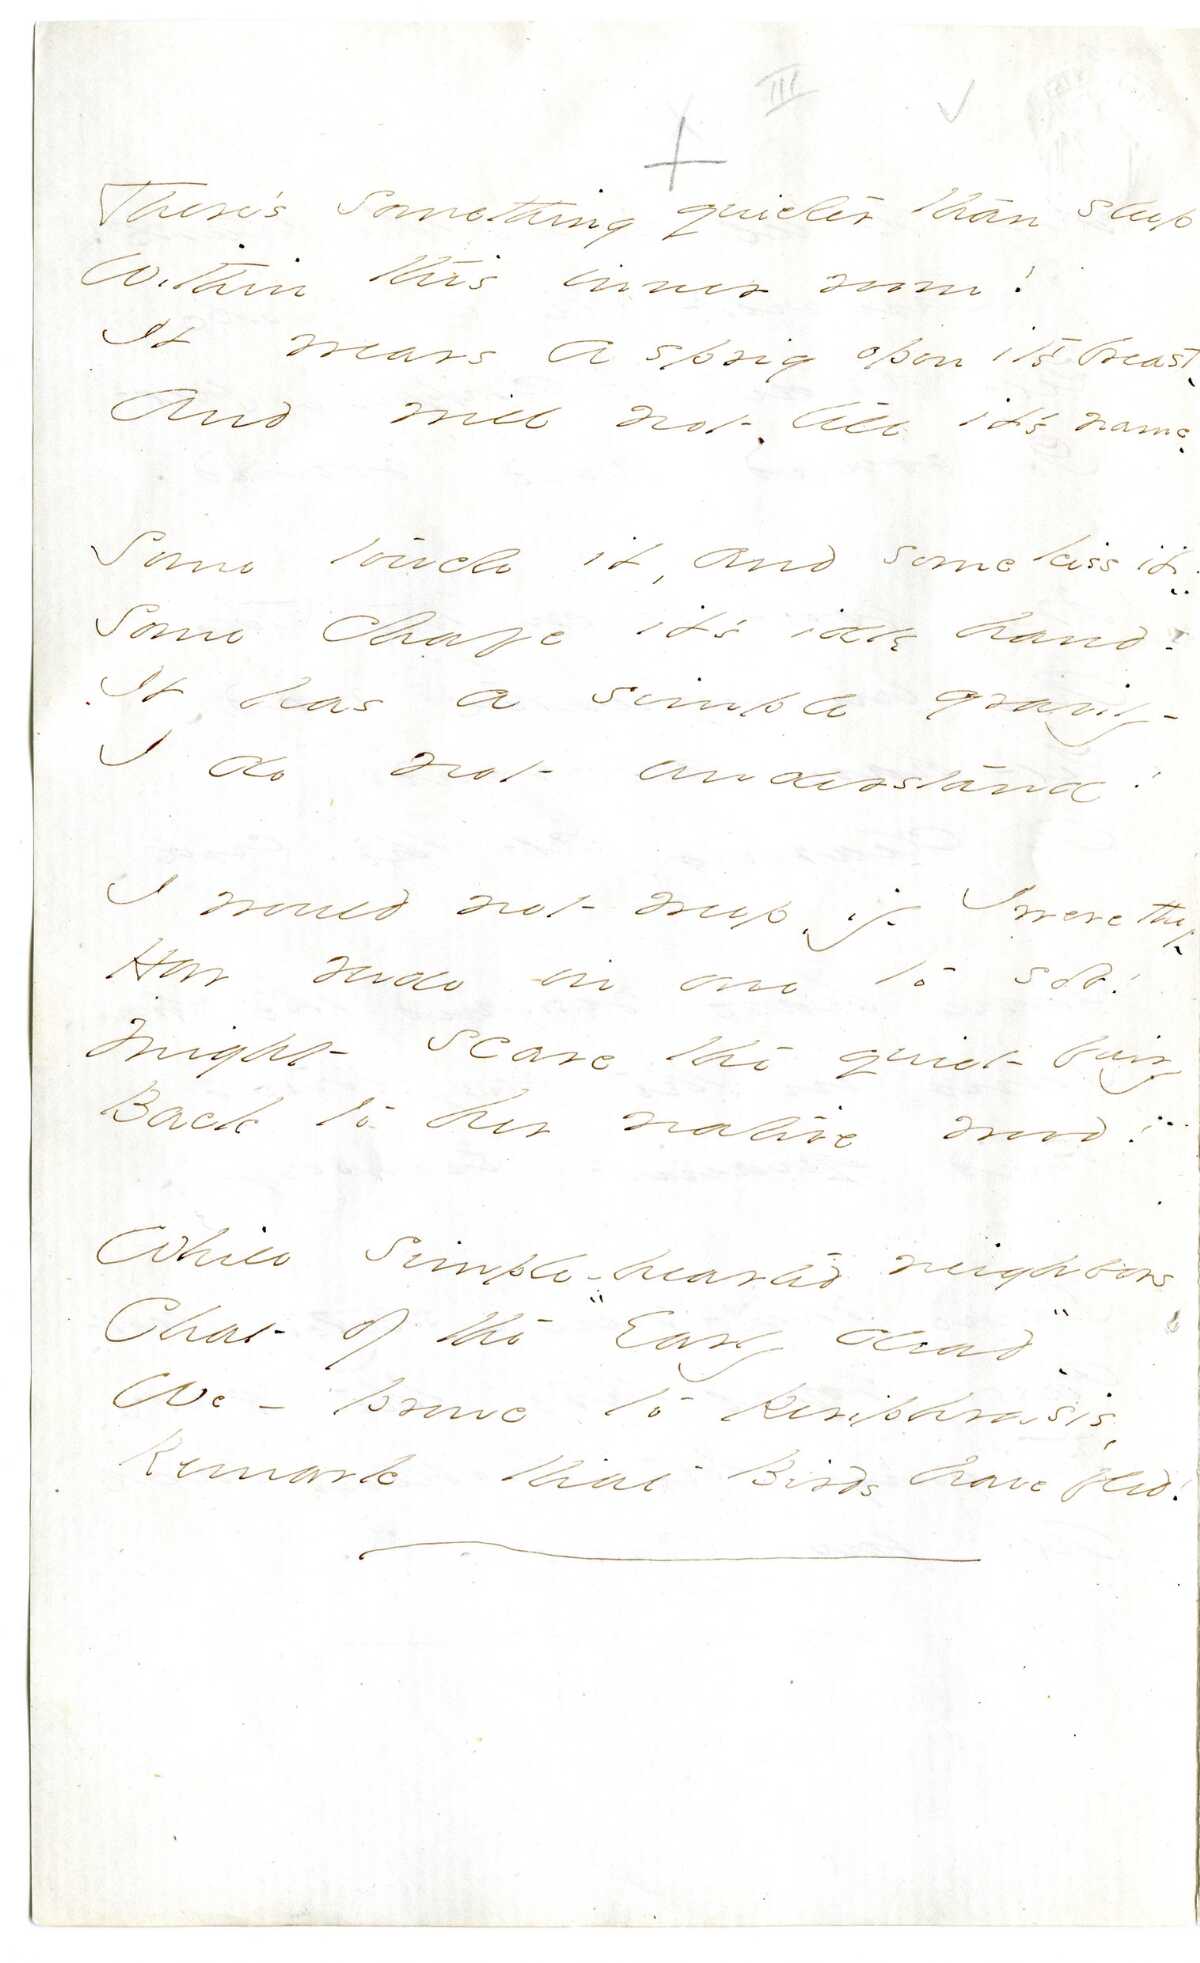 III
There's something quieter than sleep
Within this inner room!
It wears a sprig upon it's breast,
And will not tell it's name.
Some touch it, and some kiss it,
Some chafe it's idle hand.
It has a simple gravity -
I do not understand!
I would not weep, if I were they,
How rude in one to sob!
Might scare the quiet fairy
Back to her native wood!
While simple-hearted neighbors
Chat of the "Early dead",
We - prone to periphrasis,
Remark that Birds have fled!